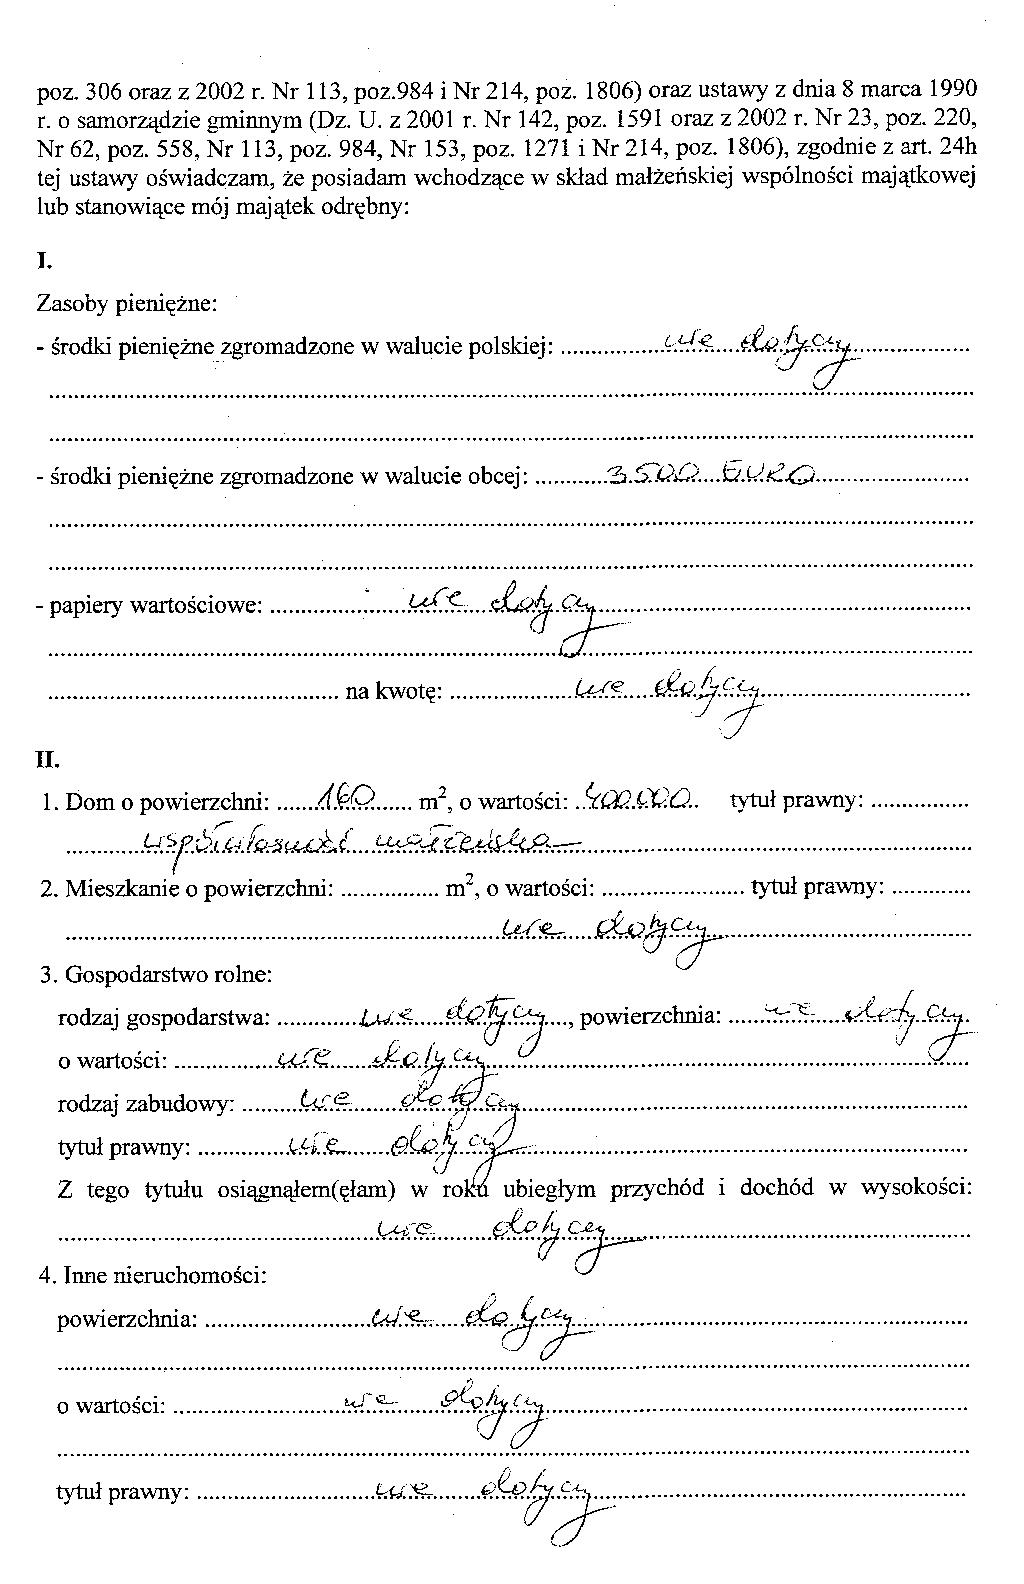 poz. 306 oraz z 2002 r. Nr 113, poz.984 i Nr 214, poz. 1806) oraz ustawy z dnia 8 marca 1990
r. o samorządzie gminnym (Dz. U. z 2001 r. Nr 142, poz. 1591 oraz z 2002 r. Nr 23, poz. 220,
Nr 62, poz. 558, Nr 113, poz. 984, Nr 153, poz. 1271 i Nr 214, poz. 1806), zgodnie z art. 24h
tej ustawy oświadczam, że posiadam wchodzące w skład małżeńskiej wspólności majątkowej
lub stanowiące mój majątek odrębny:
I.
Zasoby pieniężne:
- środki pieniężne zgromadzone w walucie polskiej: nie dotyczy
- środki pieniężne zgromadzone w walucie obcej: 3.500 EURO
- papiery wartościowe: nie dotyczy
na kwotę: nie dotyczy
II.
1. Dom o powierzchni: 160 m², o wartości: 400.000 tytuł prawny:
współwłasność małżeńska
2. Mieszkanie o powierzchni: m², o wartości: tytuł prawny:
nie dotyczy
3. Gospodarstwo rolne:
rodzaj gospodarstwa: nie dotyczy, powierzchnia: nie dotyczy
o wartości: nie dotyczy
rodzaj zabudowy: nie dotyczy
tytuł prawny: nie dotyczy
Z tego tytułu osiągnąłem(ęłam) w roku ubiegłym przychód i dochód w wysokości:
nie dotyczy
4. Inne nieruchomości:
powierzchnia: nie dotyczy
o wartości: nie dotyczy
tytuł prawny: nie dotyczy